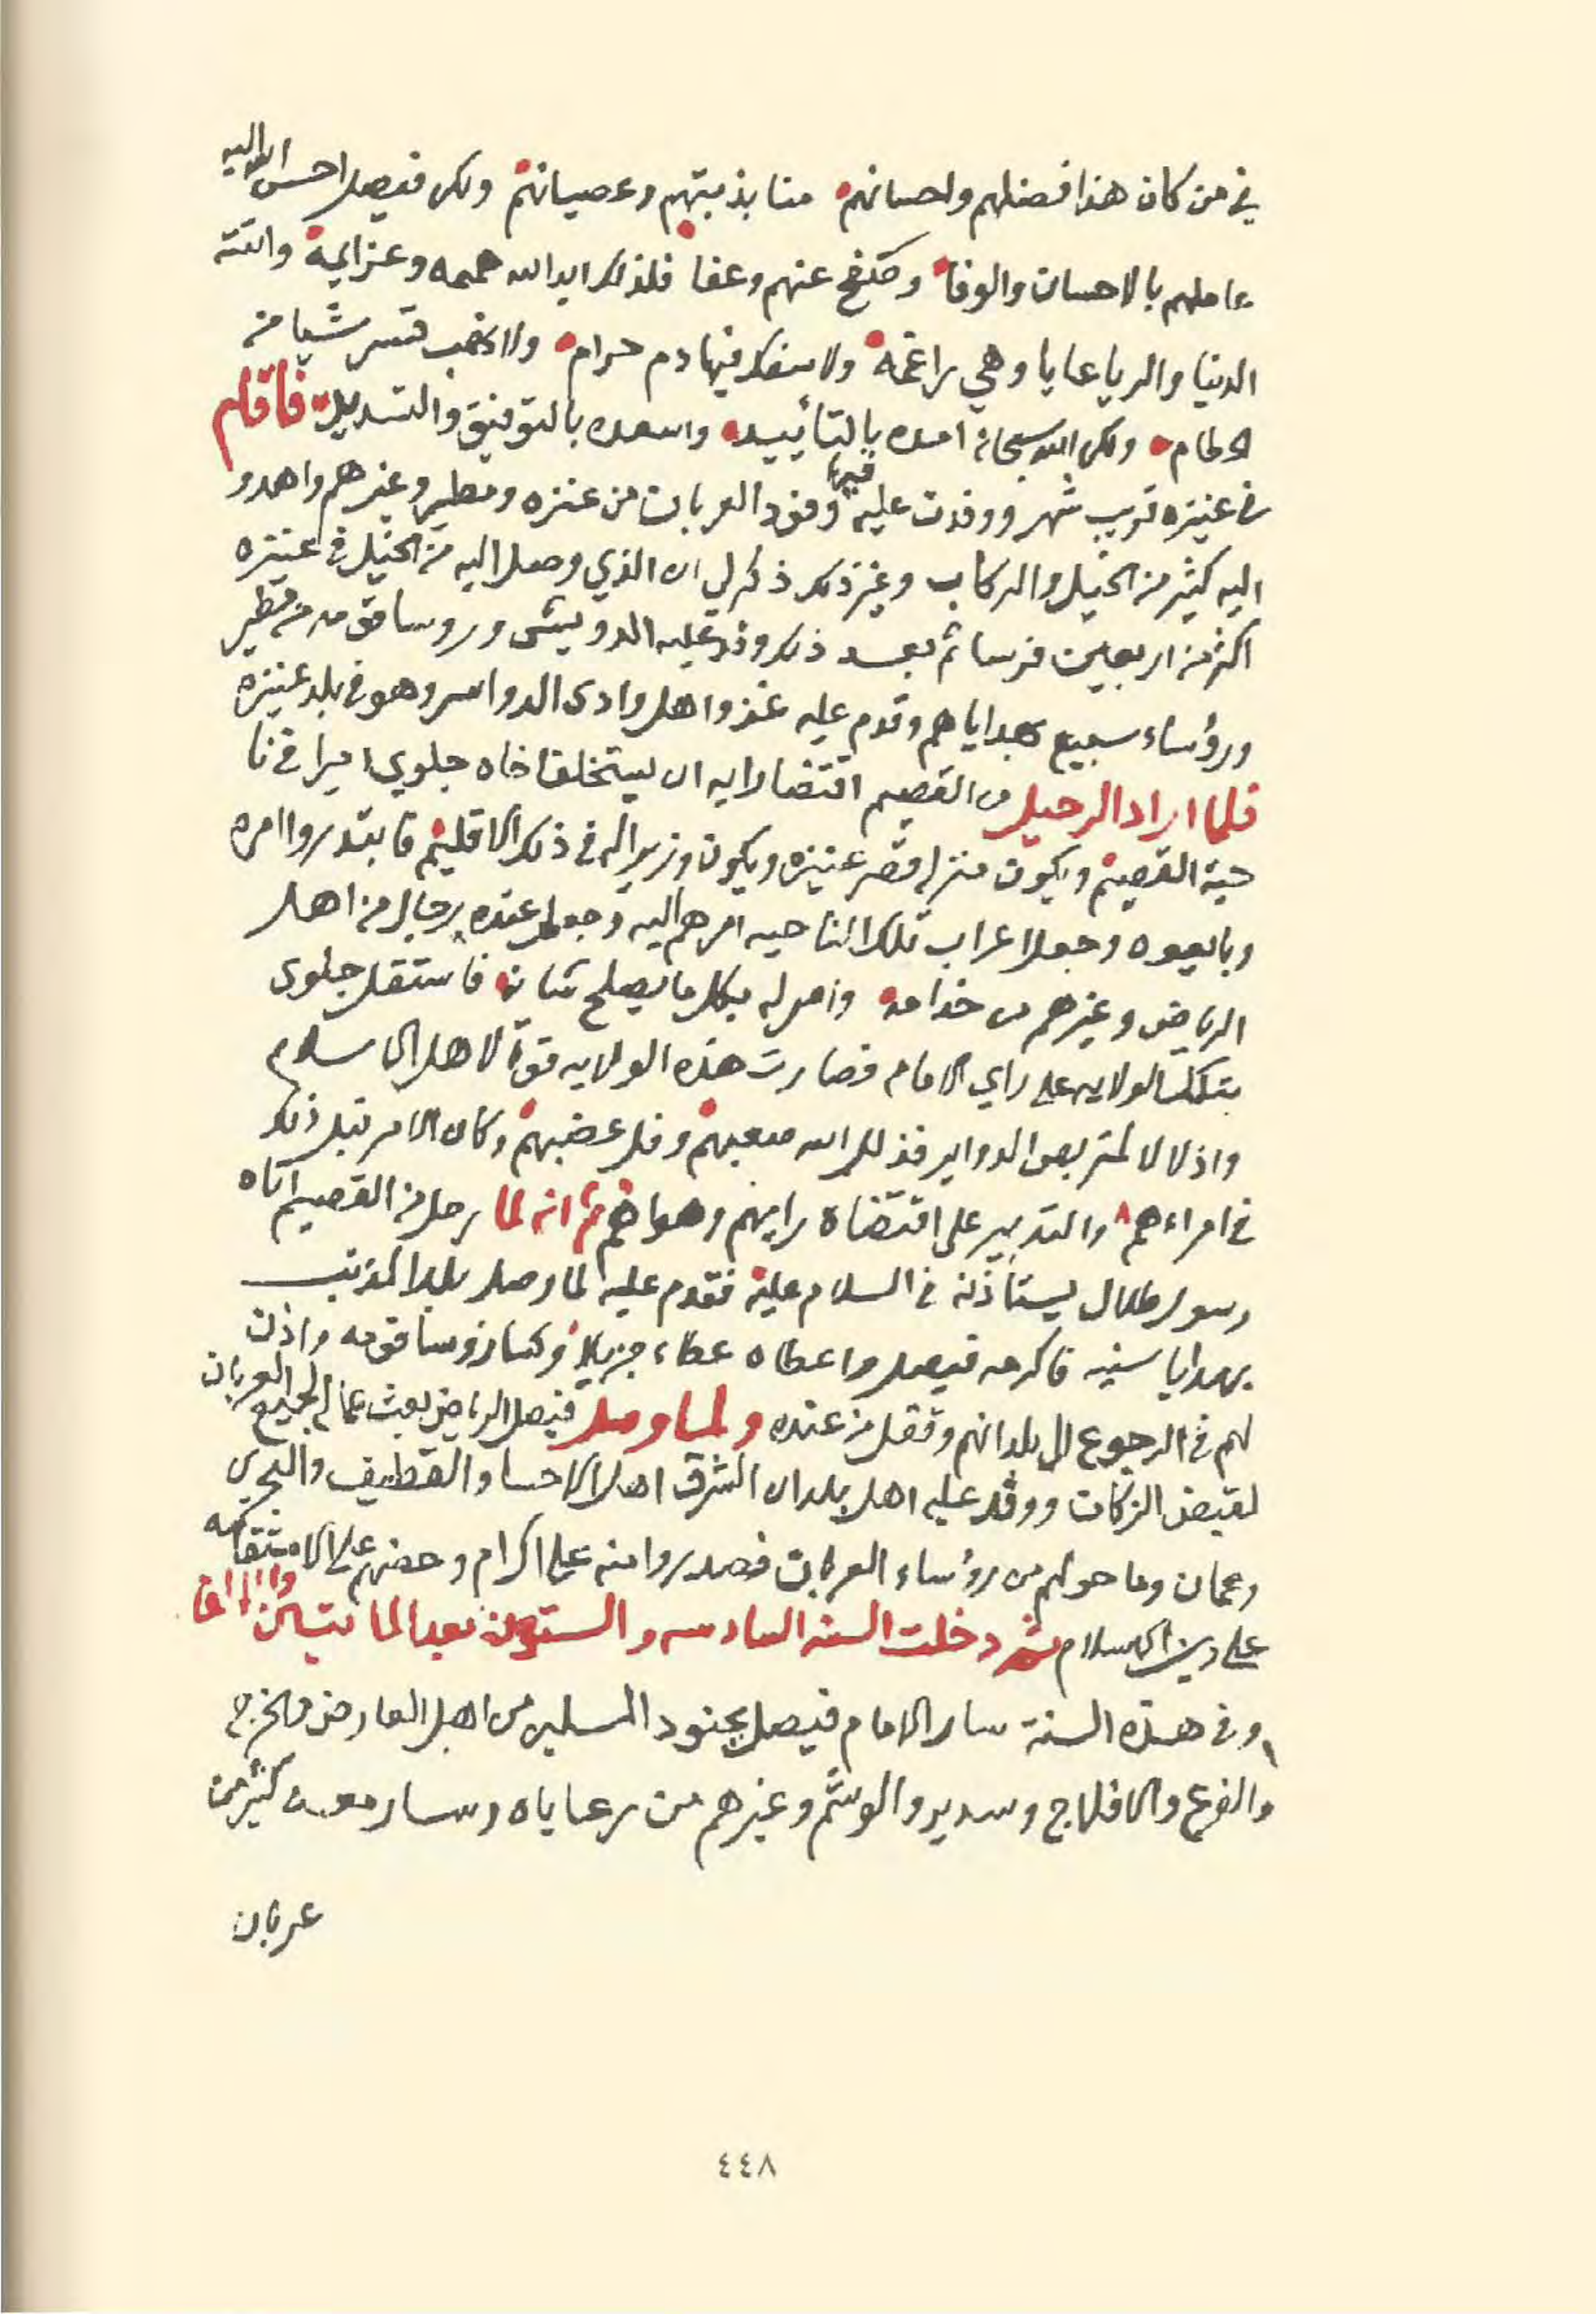 في من كان هذا فضلهم واحسانهم منابذتهم وعصيانهم ولكن فيصل احسن الله اليه
عاملهم بالاحسان والوفا وصفح عنهم وعفا فلذلك ايد الله هممه وعزايمه واتته
الدنيا والرياعايا وهي راغمه ولا سفك فيها دم حرام ولا نهب قسر شيا من
الحطام ولكن الله سبحانه امده بالتأييد واسعده بالتوفيق والتسديد فاقام
في عنيزه قريب شهر ووفدت عليه فيها وفود العربان من عنزه ومطير وغيرهم واهدو
اليه كثير من الخيل والركاب وغير ذلك ذكر لي ان الذي وصل اليه من الخيل في عنيزه
اكثر من اربعين فرسا ثم بعد ذلك وفد عليه الدويش وروسا قومه من مطير
ورؤساء سبيع بهداياهم وقدم عليه غزو اهل وادي الدواسر وهو في بلد عنيزه
فلما اراد الرحيل من القصيم اقتضا رايه ان يستخلف اخاه جلوي اميرا في نا
حية القصيم ويكون منزله قصر عنيزه ويكون وزيرا له في ذلك الاقليم فابتدروا امره
وبايعوه وجعل اعراب تلك الناحيه امرهم اليه وجعل عنده رجال من اهل
الرياض وغيرهم من خدامه وامر له بكل ما يصلح شانه فاستقل جلوي
بتلك الولايه على راي الامام فصارت هذه الولايه قوة لاهل الاسلام
واذلالا لمتربص الدواير فذلل الله صعبهم وفل عضبهم وكان الامر قبل ذلك
في امراءهم والتدبير على اقتضاه رايهم وهواهم ثم انه لما رحل من القصيم اتاه
رسول طلال يستأذنه في السلام عليه فقدم عليه لما وصل بلد المذنب
بهدايا سنيه فاكرمه فيصل واعطاه عطاء جزيلا وكسا روسا قومه واذن
لهم في الرجوع الى بلدانهم وقفل من عنده ولما وصل فيصل الرياض بعث عماله لجميع العربان
لقبض الزكات ووفد عليه اهل بلدان الشرق اهل الاحسا والقطيف والبحرين
وعمان وما حولهم من رؤساء العربان فصدروا منه على اكرام وحضهم على الاستقامه
على دين الاسلام ثم دخلت السنه السادسه والستون بعد المايتين والالف
وفي هذه السنة سار الامام فيصل بجنود المسلمين من اهل العارض والخرج
والفرع والافلاج وسدير والوشم وغيرهم من رعاياه وسار معه كثير من
عربان
٤٤٨